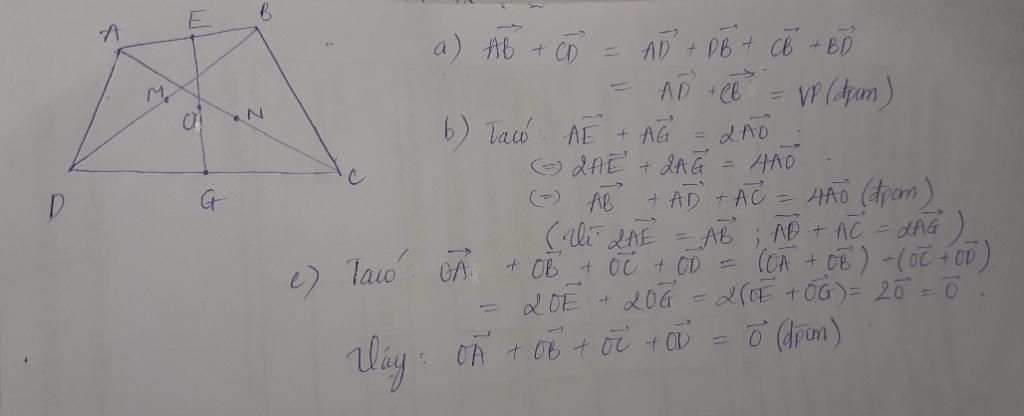 E
B
A
M
N
O
D
G
C
a) AB→ + CD→ = AD→ + DB→ + CB→ + BD→
= AD→ + CB→ = VP (đpcm)
b) Ta có: AE→ + AG→ = 2AO→
(=) 2AE→ + 2AG→ = 4AO→.
(=) AB→ + AD→ + AC→ = 4AO→ (đpcm)
(Vì 2AE→ = AB→ ; AD→ + AC→ = 2AG→)
c) Ta có: OA→ + OB→ + OC→ + OD→ = (OA→ + OB→) + (OC→ + OD→)
= 2OE→ + 2OG→ = 2(OE→ + OG→) = 2O→ = O→.
Vậy: OA→ + OB→ + OC→ + OD→ = O→ (đpcm)